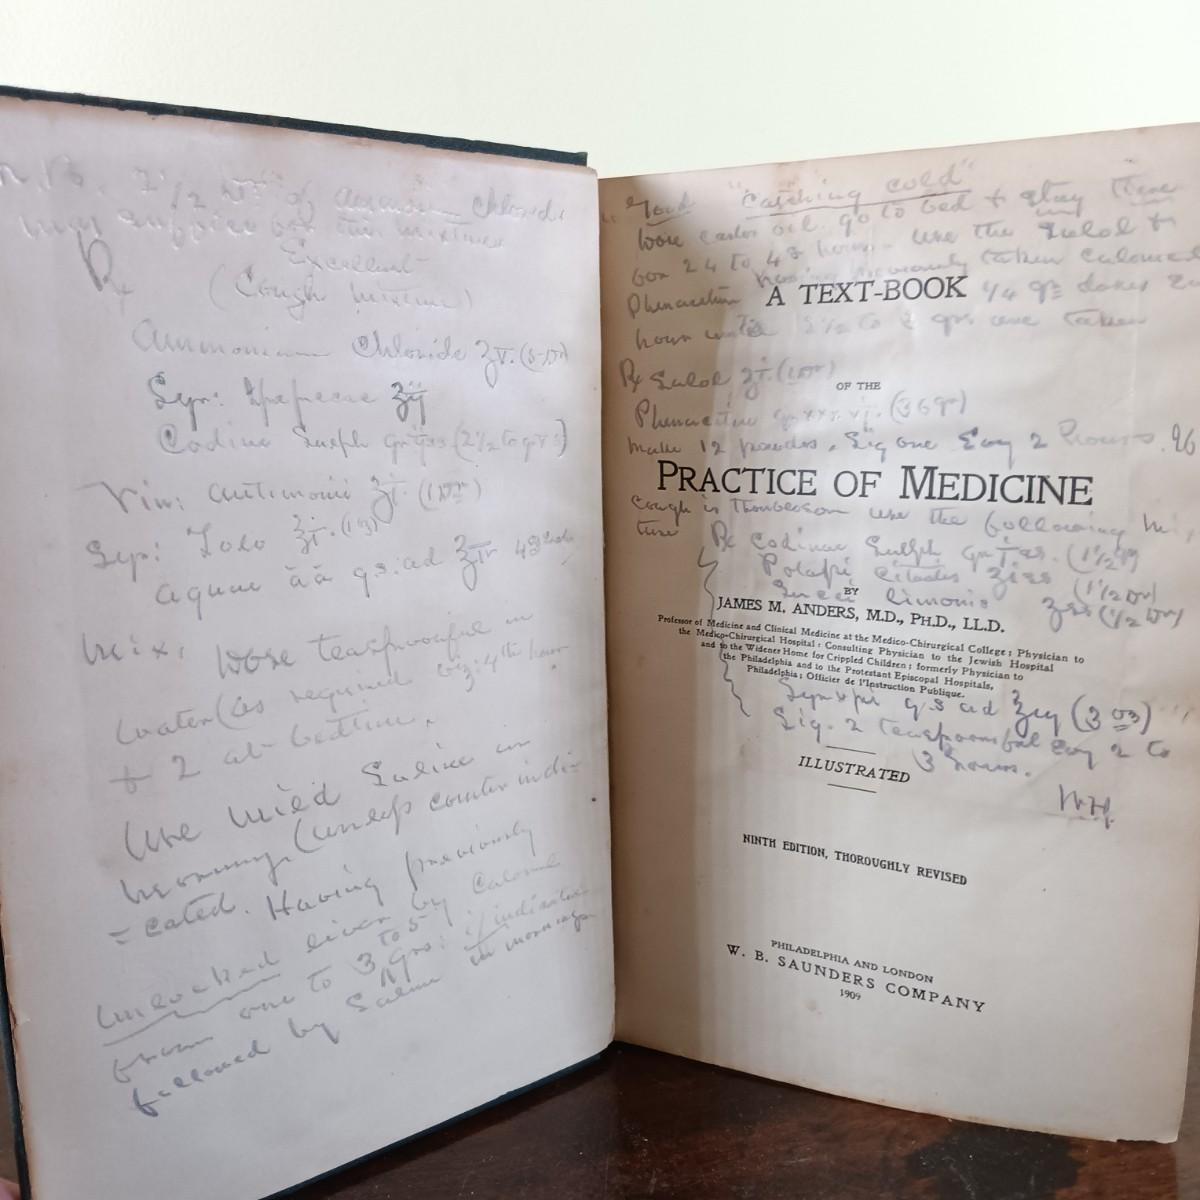 N.B. 2 1/2 drs of ammonium chloride
may suffice for this mixture
Excellent
Rx (Cough mixture)
Ammonium Chloride ʒv. (5-dr)
Syr: Ipepecae ʒij
Codine Sulph (2 1/2 to grs)
Vin: Antimonii ʒi. (1 dr)
Syr: Tolo ℥i. (1 ℥)
Aquae āā q.s. ad ℥iv
Mix. Dose teaspoonful in
water (as required viz: 4th hour
+ 2 at bedtime.
Use mild Saline in
morning. (unless counterindi-
=cated. Having previously
unlocked liver by Calomel
from one to 3 to 5 grs: if indicated
followed by Saline in morning
Good "catching cold"
Dose castor oil. go to bed + stay there
for 24 to 48 hours - use the Salol +
Phenacetin having previously taken calomel
A TEXT-BOOK
1/4 gr doses
hour until 1 1/2 to 2 grs are taken
Rx Salol ʒi. (1 dr)
OF THE
Phenacetine grs xxxvi. (36 gr)
Make 12 powders. Sig one Evy 2 hours. If
PRACTICE OF MEDICINE
Cough is troublesome use the following mix,
ture Rx Codinae Sulph (1 1/2 gr)
Potassi Citrates ʒiss (1 1/2 dr)
BY
Succi limonis ʒss (1/2 dr)
JAMES M. ANDERS, M.D., PH.D., LL.D.
Professor of Medicine and Clinical Medicine at the Medico-Chirurgical College; Physician to
the Medico-Chirurgical Hospital; Consulting Physician to the Jewish Hospital
and to the Widener Home for Crippled Children; formerly Physician to
the Philadelphia and to the Protestant Episcopal Hospitals,
Philadelphia; Officier de l'Instruction Publique.
q s ad ℥iij (3 oz)
Sig. 2 teaspoonsful Evy 2 to
3 hours.
ILLUSTRATED
NINTH EDITION, THOROUGHLY REVISED
PHILADELPHIA AND LONDON
W. B. SAUNDERS COMPANY
1909